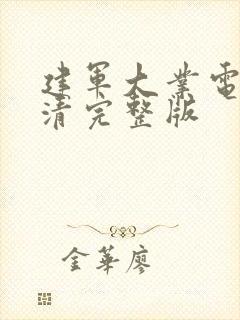 建军大業電
清完整版
金華廖